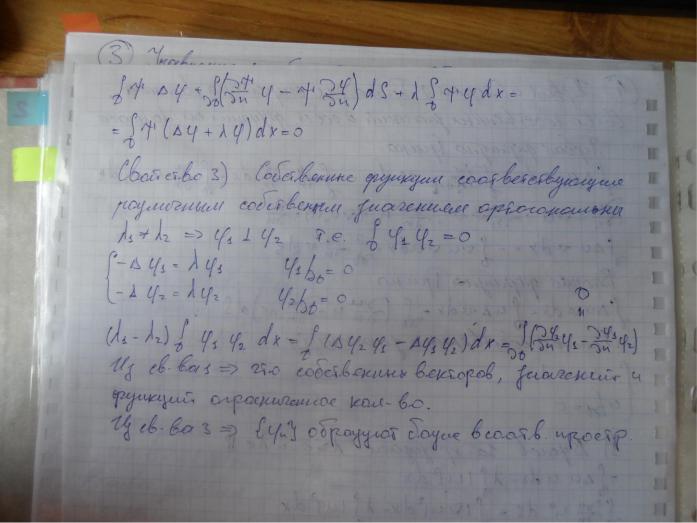 ③
∫_D Ψ Δφ + ∫_∂D (∂Ψ/∂n φ − Ψ ∂φ/∂n) dS + λ ∫_D Ψ φ dx =
= ∫_D Ψ (Δφ + λφ) dx = 0
Свойство 3) Собственные функции соответствующие
различным собственным значениям ортогональны
λ₁ ≠ λ₂ ⇒ φ₁ ⊥ φ₂ т.е. ∫_D φ₁ φ₂ = 0
{ −Δφ₁ = λφ₁ φ₁|_∂D = 0
−Δφ₂ = λφ₂ φ₂|_∂D = 0
0
=
(λ₁ − λ₂) ∫_D φ₁ φ₂ dx = ∫_D (Δφ₂ φ₁ − Δφ₁ φ₂) dx = ∫_∂D (∂φ₂/∂n φ₁ − ∂φ₁/∂n φ₂)
Из св-ва 1 ⇒ что собственных векторов, значений и
функций ограниченное кол-во.
Из св-ва 3 ⇒ {φₙ} образуют базис в соотв. простр.
2